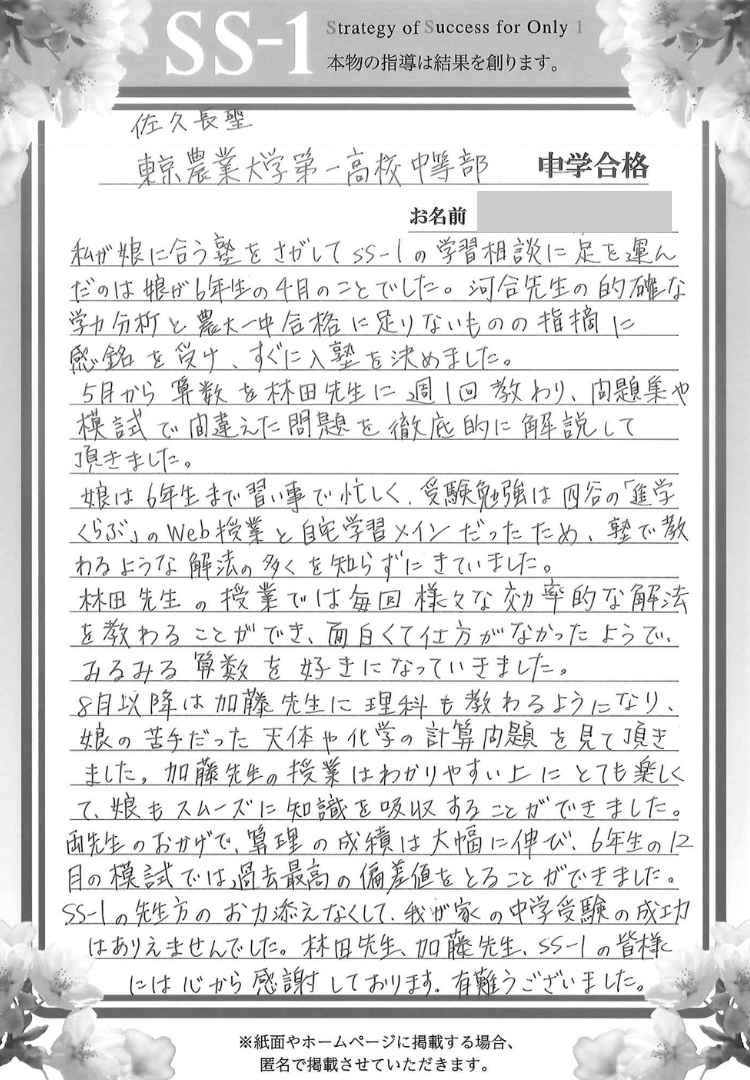 SS-1
Strategy of Success for Only 1
本物の指導は結果を創ります。
佐久長聖
東京農業大学第一高校中等部 中学合格
お名前
私が娘に合う塾をさがしてSS-1の学習相談に足を運ん
だのは娘が6年生の4月のことでした。河合先生の的確な
学力分析と農大一中合格に足りないものの指摘に
感銘を受け、すぐに入塾を決めました。
5月から算数を林田先生に週1回教わり、問題集や
模試で間違えた問題を徹底的に解説して
頂きました。
娘は6年生まで習い事で忙しく、受験勉強は四谷の「進学
くらぶ」のWeb授業と自宅学習メインだったため、塾で教
わるような解法の多くを知らずにきていました。
林田先生の授業では毎回様々な効率的な解法
を教わることができ、面白くて仕方がなかったようで、
みるみる算数を好きになっていきました。
8月以降は加藤先生に理科も教わるようになり、
娘の苦手だった天体や化学の計算問題を見て頂き
ました。加藤先生の授業はわかりやすい上にとても楽しく
て、娘もスムーズに知識を吸収することができました。
両先生のおかげで、算理の成績は大幅に伸び、6年生の12
月の模試では、過去最高の偏差値をとることができました。
SS-1の先生方のお力添えなくして、我が家の中学受験の成功
はありえませんでした。林田先生、加藤先生、SS-1の皆様
には心から感謝しております。有難うございました。
※紙面やホームページに掲載する場合、
匿名で掲載させていただきます。